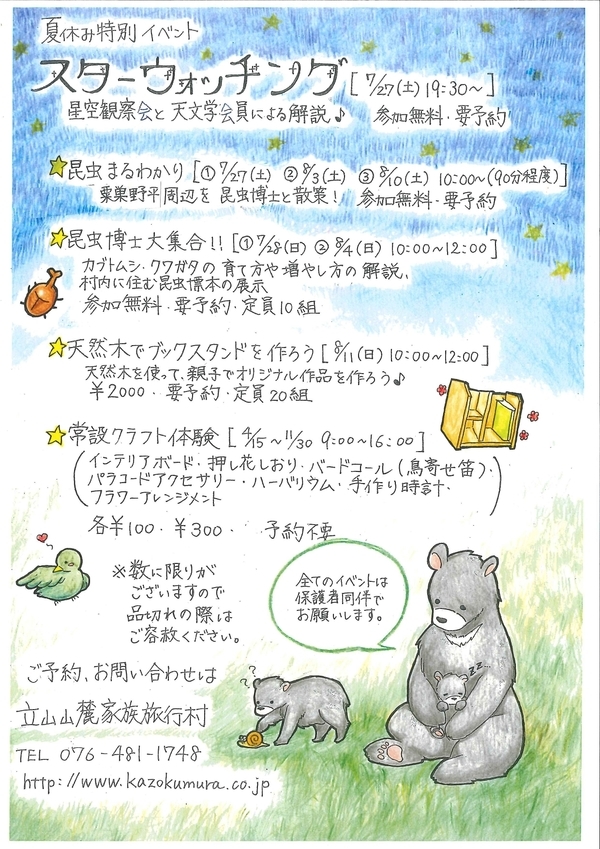 夏休み特別イベント
スターウォッチング [7/27(土) 19:30~]
星空観察会と天文学会員による解説♪ 参加無料・要予約
昆虫まるわかり [①7/27(土) ②8/3(土) ③8/10(土) 10:00~(90分程度)]
粟巣野平周辺を昆虫博士と散策! 参加無料・要予約
昆虫博士大集合!! [①7/28(日) ②8/4(日) 10:00~12:00]
カブトムシ・クワガタの育て方や増やし方の解説、
村内に住む昆虫標本の展示
参加無料・要予約・定員10組
天然木でブックスタンドを作ろう [8/11(日) 10:00~12:00]
天然木を使って、親子でオリジナル作品を作ろう♪
¥2000・要予約・定員20組
常設クラフト体験 [4/15~11/30 9:00~16:00]
(インテリアボード・押し花しおり・バードコール(鳥寄せ笛)・
パラコードアクセサリー・ハーバリウム・手作り時計・
フラワーアレンジメント)
各¥100・¥300・ 予約不要
※数に限りが
ございますので
品切れの際は
ご容赦ください。
全てのイベントは
保護者同伴で
お願いします。
??
zz...
ご予約、お問い合わせは
立山山麓家族旅行村
TEL 076-481-1748
http://www.kazokumura.co.jp